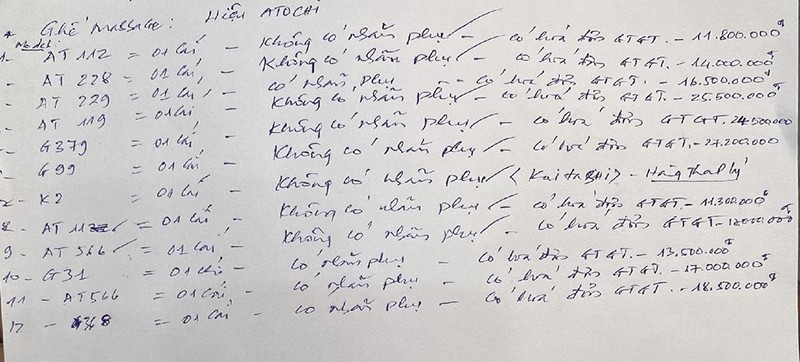 * Ghế Massage: Hiệu ATOCHI
Model:
1- AT 112 = 01 cái - Không có nhãn phụ - có hoá đơn GTGT. - 11.800.000đ
- AT 228 = 01 cái - Không có nhãn phụ - có hoá đơn GTGT. - 14.000.000đ
- AT 229 = 01 cái - có nhãn phụ - có hoá đơn GTGT. - 16.500.000đ
- AT 119 = 01 cái - Không có nhãn phụ - có hoá đơn GTGT. - 25.500.000đ
- G379 = 01 cái - Không có nhãn phụ - có hoá đơn GTGT. 24.500.000
- G99 = 01 cái - Không có nhãn phụ - có hoá đơn GTGT. - 27.200.000
- K2 = 01 cái - Không có nhãn phụ (Kaitashi) - Hàng thanh lý
8 - AT = 01 cái - Không có nhãn phụ - có hoá đơn GTGT - 11.300.000đ
9 - AT 566 = 01 cái - Không có nhãn phụ - có hoá đơn GTGT - 12000.000đ
10 - G31 = 01 cái - có nhãn phụ - có hoá đơn GTGT. - 13.500.000đ
11 - AT566 = 01 cái - có nhãn phụ - có hoá đơn GTGT. - 17.000.000đ
12 - = 01 cái - có nhãn phụ - có hoá đơn GTGT. - 18.500.000đ